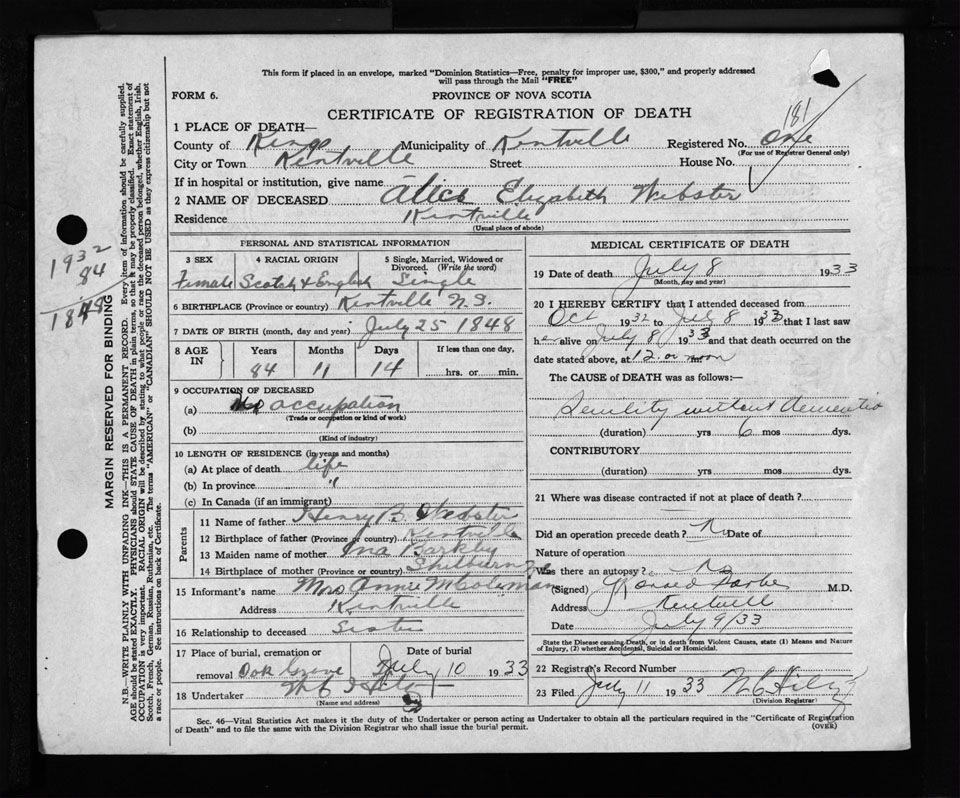 This form if placed in an envelope, marked "Dominion Statistics—Free, penalty for improper use, $300," and properly addressed
will pass through the Mail "FREE"
FORM 6.
PROVINCE OF NOVA SCOTIA
CERTIFICATE OF REGISTRATION OF DEATH
181
1 PLACE OF DEATH—
County of Kings Municipality of Kentville Registered No. one
(For use of Registrar General only)
City or Town Kentville Street House No.
If in hospital or institution, give name
2 NAME OF DECEASED Alice Elizabeth Webster
Residence Kentville
(Usual place of abode)
PERSONAL AND STATISTICAL INFORMATION
3 SEX 4 RACIAL ORIGIN 5 Single, Married, Widowed or Divorced. (Write the word)
Female Scotch & English Single
6 BIRTHPLACE (Province or country) Kentville N.S.
7 DATE OF BIRTH (month, day and year) July 25 1848
8 AGE IN Years Months Days If less than one day,
84 11 14 hrs. or min.
9 OCCUPATION OF DECEASED
(a) No occupation
(Trade or occupation or kind of work)
(b)
(Kind of industry)
10 LENGTH OF RESIDENCE (in years and months)
(a) At place of death life
(b) In province "
(c) In Canada (if an immigrant)
Parents
11 Name of father Henry B Webster
12 Birthplace of father (Province or country) Kentville
13 Maiden name of mother Ina Barkley
14 Birthplace of mother (Province or country) Shilburn NS
15 Informant's name Mrs Annie M Coleman
Address Kentville
16 Relationship to deceased Sister
17 Place of burial, cremation or removal Oak Grove DATE OF BURIAL July 10 1933
18 Undertaker
(Name and address)
MEDICAL CERTIFICATE OF DEATH
19 Date of death July 8 1933
(Month, day and year)
20 I HEREBY CERTIFY that I attended deceased from
Oct 1932 to July 8 1933 that I last saw
her alive on July 8 1933 and that death occurred on the
date stated above, at 12 noon
The CAUSE of DEATH was as follows:—
Senility without dementia
(duration) yrs 6 mos dys.
CONTRIBUTORY
(duration) yrs. mos. dys.
21 Where was disease contracted if not at place of death?
Did an operation precede death? No Date of
Nature of operation
Was there an autopsy? No
(Signed) M.D.
Address Kentville
Date July 9/33
State the Disease causing Death, or in death from Violent Causes, state (1) Means and Nature
of Injury, (2) whether Accidental, Suicidal or Homicidal.
22 Registrar's Record Number
23 Filed July 11 1933
(Division Registrar)
Sec. 46—Vital Statistics Act makes it the duty of the Undertaker or person acting as Undertaker to obtain all the particulars required in the "Certificate of Registration
of Death" and to file the same with the Division Registrar who shall issue the burial permit.
(OVER)
1932
84
1848
MARGIN RESERVED FOR BINDING
N.B.—WRITE PLAINLY WITH UNFADING INK—THIS IS A PERMANENT RECORD. Every item of information should be carefully supplied.
AGE should be stated EXACTLY. PHYSICIANS should STATE CAUSE OF DEATH in plain terms, so that it may be properly classified. Exact statement of
OCCUPATION is very important. RACIAL ORIGIN will be described by stating to what people or race the deceased person belonged, whether English, Irish,
Scotch, French, German, Russian, Ruthenian, etc. The terms "AMERICAN" or "CANADIAN" SHOULD NOT BE USED as they express citizenship but not
a race or people. See instructions on back of Certificate.